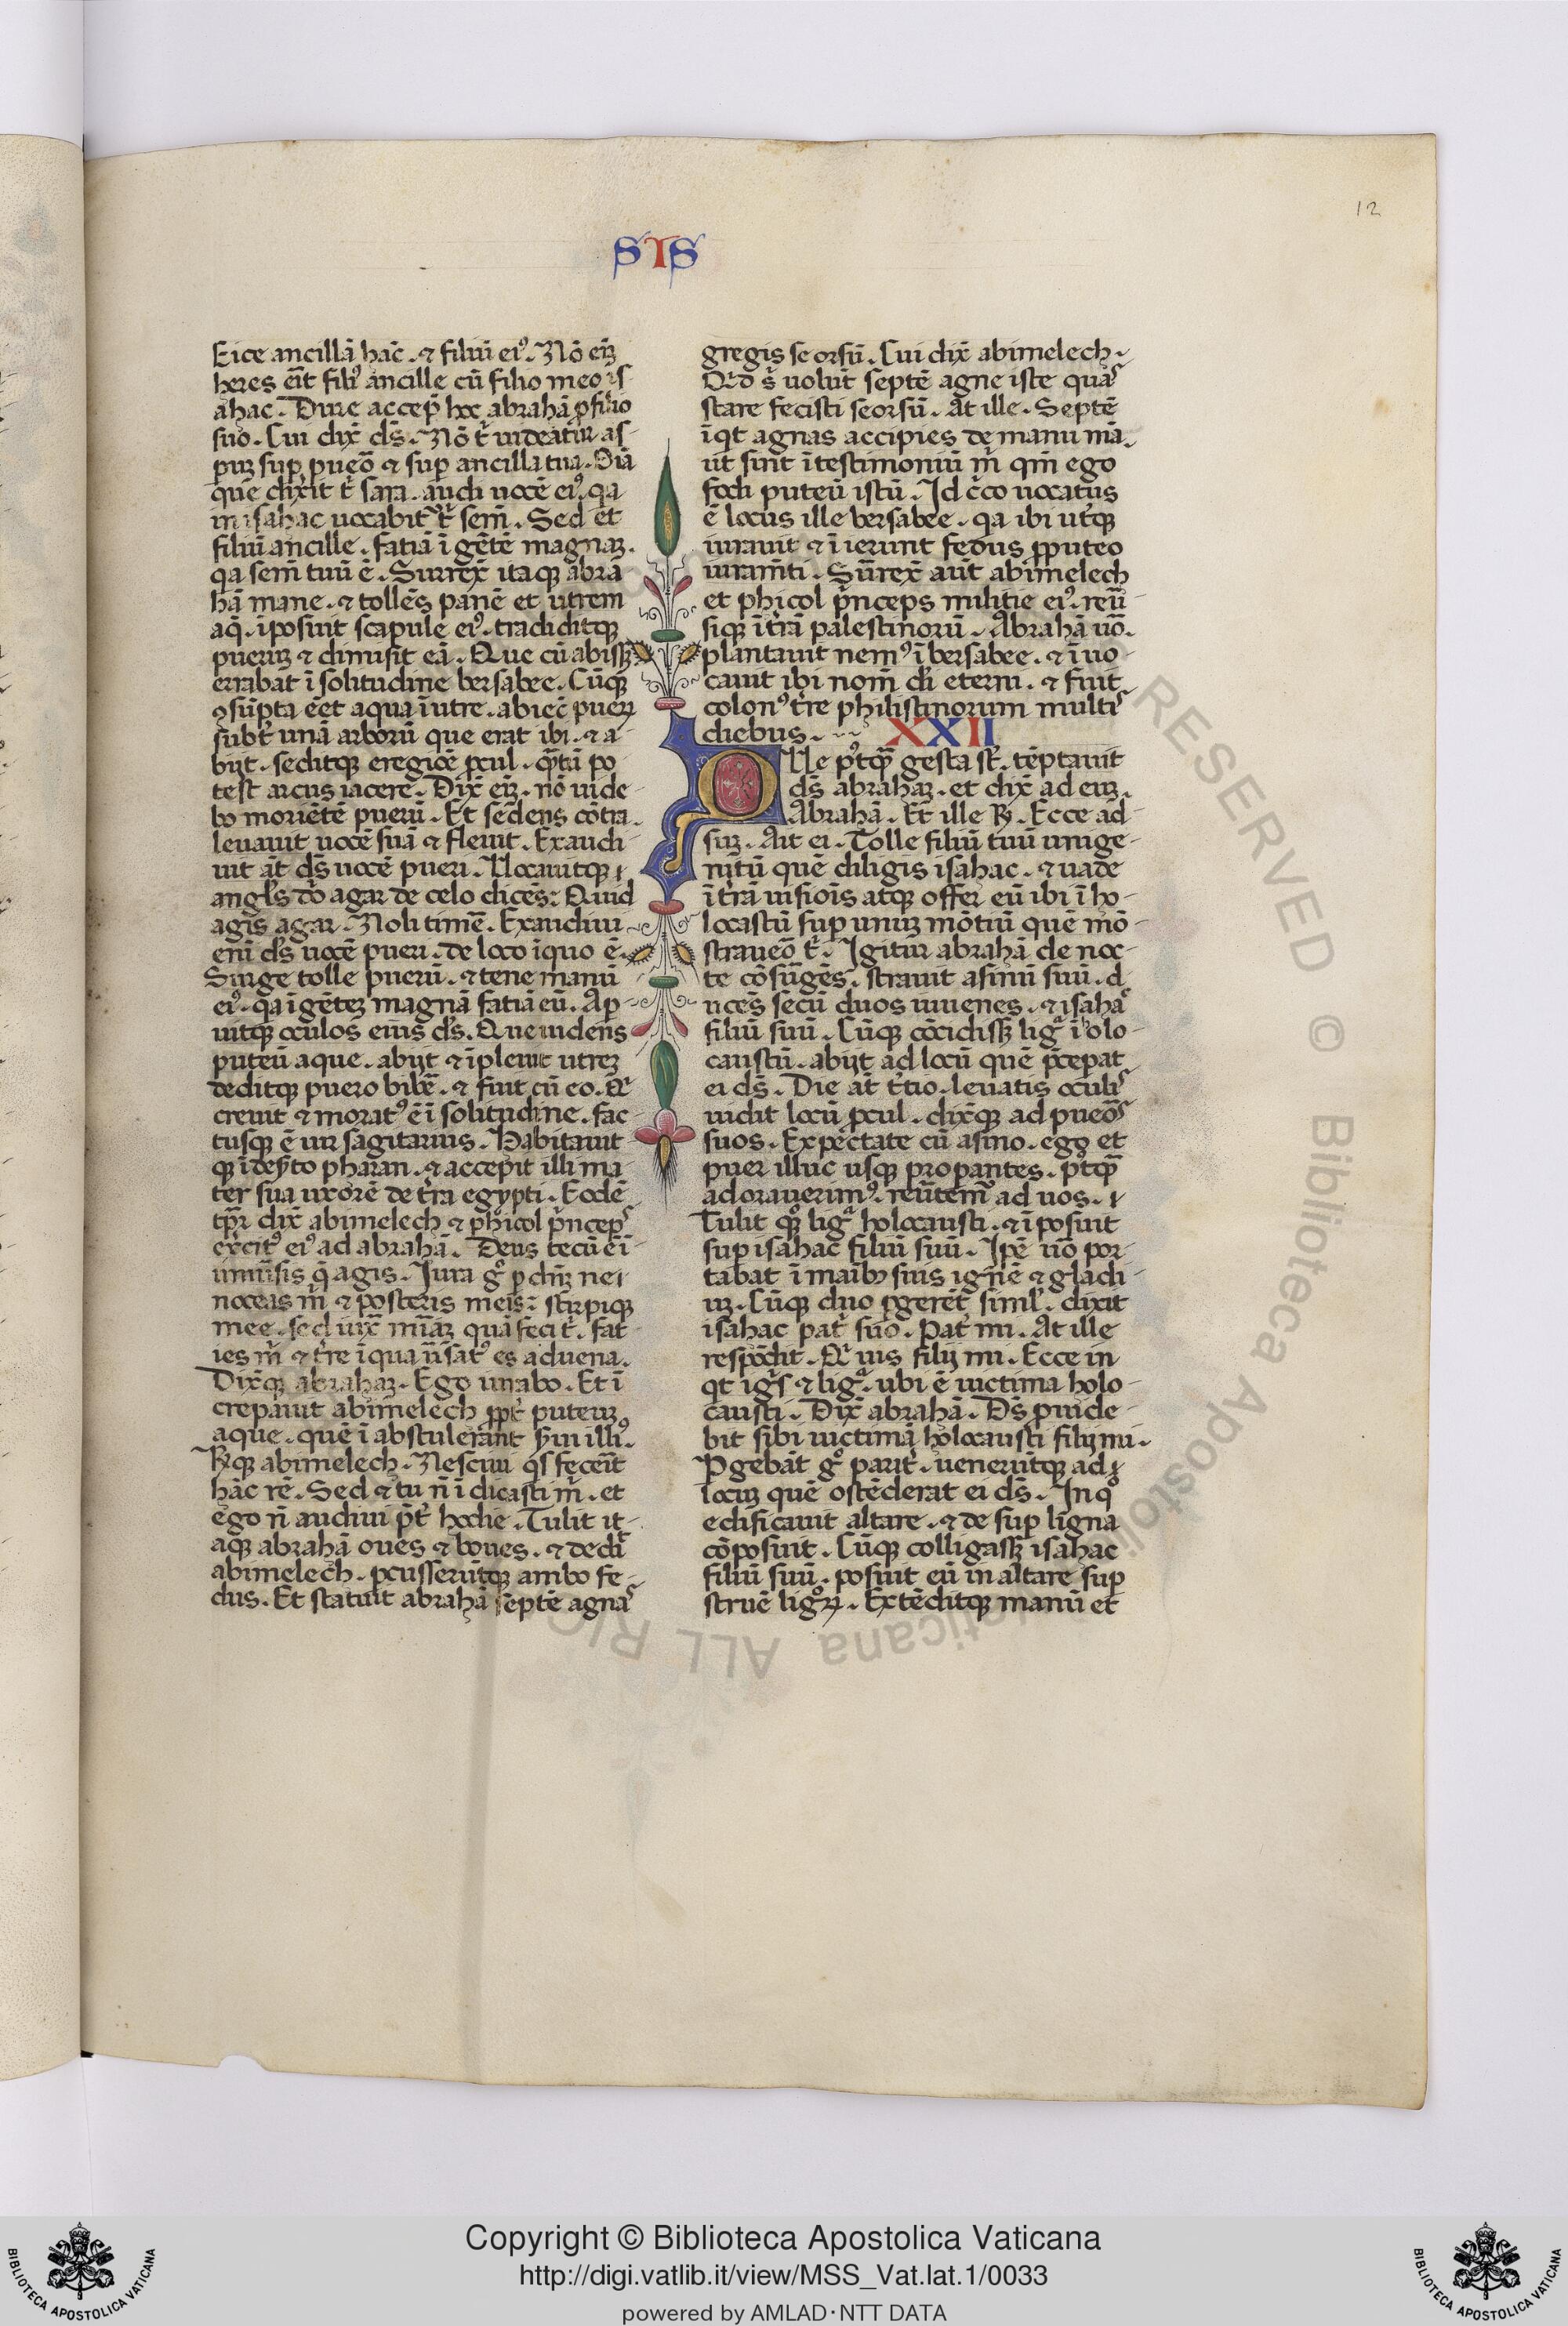 12
SIS
Eice ancillā hāc. ⁊ filiū eiꝰ. Nō eīʒ
heres eīt filiꝰ ancille cū filio meo is
ahac. Dure accep̄ hoc abrahā ꝓ filio
suo. Cui dix̄ ds̄. Nō t̄ uideatur as
puʒ suꝑ pueō ⁊ suꝑ ancilla tua. Oīa
que dixīt t̄ sara. audi uocē eiꝰ. qa
in isahac uocabit᷑ t̄ sem̄. Sed et
filiū ancille. fatiā ī gētē magnaʒ.
qa sem̄ tuū ē. Surrex̄ itaqꝫ abra
hā mane. ⁊ tollēs panē et utrem
aq̄. īposuit scapule eiꝰ. tradiditqꝫ
pueruʒ ⁊ dimisit eā. Que cū abissꝫ
errabat ī solitudine bersabee. Cūqꝫ
ꝯsūpta eēt aqua ī utre. abiec̄ pueꝝ
subt̄ unā arborū que erat ibi. ⁊ a
bijt. seditqꝫ eregiōe ꝓcul. q̄tū po
test arcus iacere. Dix̄ eīʒ. nō uide
bo moriētē pueꝝ. Et sedens cōtra
leuauit uocē suā ⁊ fleuit. Exaudi
uit āt ds̄ uocē pueri. Uocauitqꝫ
angl̄s dō agar de celo dicēs: Quid
agis agar. Noli timē. Exaudiui
eni ds̄ uocē pueri. de loco ī quo ē.
Surge tolle puerū. ⁊ tene manū
eiꝰ. qa ī gētēʒ magnā fatiā eū. Ap
uitqꝫ oculos eius ds̄. Que uidens
puteū aque. abijt ⁊ īpleuit utreʒ
deditqꝫ puero bibē. ⁊ fuit cū eo. Qͥ
creuit ⁊ moratꝰ ē ī solitudine. fac
tusqꝫ ē uir sagitarius. Habitauit
qꝫ ī dēsto pharan. ⁊ accepit illi ma
ter sua uxorē de tr̄a egypti. Eodē
tp̄r dix̄ abimelech ⁊ phicol p̄nceps
ex̄citꝰ eiꝰ ad abrahā. Deus tecū ē ī
uniūsis q̄ agis. Jura gͦ ꝑ dn̄ʒ ne
noceas m̄ ⁊ posteris meis: stirpiqꝫ
mee. sed iux̄ mīaʒ quā feci t̄. fat
ies m̄ ⁊ tr̄e ī qua ūsatꝰ es aduena.
Dix̄qꝫ abrahaʒ. Ego iurabo. Et ī
crepauit abimelech ꝓpt̄ puteuʒ
aque. quē ī abstulerant s̄ui illiꝰ.
R̄qꝫ abimelech. Nesciui qͥs fecēit
hāc rē. Sed ⁊ tu n̄ īdicasti m̄. et
ego n̄ audiui p̄t̄ hodie. Tulit it
aqꝫ abrahā oues ⁊ boues. ⁊ dedit
abimelech. ꝑcusserūtqꝫ ambo fe
dus. Et statuit abrahā septē agnas
gregis seorsū. Cui dix̄ abimelech.
Qͥd s̄ uolūt septē agne iste quas
stare fecisti seorsū. At ille. Septē
īqt agnas accipies de manu mā.
ut sint ī testimoniū m̄ qm̄ ego
fodi puteū istū. Id c̄co uocatus
ē locus ille bersabee. qa ibi ut̄qꝫ
iurauit ⁊ īierunt fedus ꝓ puteo
iuram̄ti. Sūrex̄ aūt abimelech
et phicol p̄nceps militie eiꝰ. reū
siqꝫ ī tr̄ā palestinorū. Abrahā uō.
plantauit nemꝰ ī bersabee. ⁊ ī uo
cauit ibi nom̄ di eterni. ⁊ fuit
colonꝰ tr̄e philistinorum multis
diebus. XXII
QUe pꝰtq̄ gesta st̄. tēptauit
ds̄ abrahaʒ. et dix̄ ad euʒ.
Abrahā. Et ille R̄. Ecce ad
suʒ. Ait ei. Tolle filiū tuū unige
nitū quē diligis isahac. ⁊ uade
ī tr̄ā uisiōis atqꝫ offer eū ibi ī ho
locastū suꝑ unuʒ mōtiū quē mō
straueō t̄. Igitur abrahā de noc
te cōsūgēs. strauit asinū suū. d
ucēs secū duos iuuenes. ⁊ isahac
filiū suū. Cūqꝫ cōcidissꝫ ligͣ ī olo
caustū. abijt ad locū quē p̄cepat
ei ds̄. Die āt t̄tio. leuatis oculis
uidit locū ꝓcul. dix̄qꝫ ad pueōs
suos. Expectate cū asino. ego et
puer illuc usqꝫ properantes. pꝰtq̄
adorauerimꝰ. reūtem᷑ ad uos.
Tulit qꝫ ligͣ holocausti. ⁊ īposuit
suꝑ isahac filiū suū. Ipē uō por
tabat ī maībꝫ suis ignē ⁊ gladi
uʒ. Cūqꝫ duo ꝑgerēt siml̄. dixit
isahac pat̄ suo. Pat̄ mi. At ille
respōdit. Qͥ uis fili mi. Ecce in
qt igͥs ⁊ ligͣ. ubi ē uictima holo
causti. Dix̄ abrahā. Ds̄ ꝓuide
bit sibi uictimā holocausti fili mi.
Pgebāt gͦ parit̄. ueneruntqꝫ ad
locuʒ quē ostēderat ei ds̄. In qͦ
edificauit altare. ⁊ de suꝑ ligna
cōposuit. Cūqꝫ colligassꝫ isahac
filiū suū. posuit eū in altare suꝑ
struē ligͦꝝ. Extēditqꝫ manū et
RESERVED © Biblioteca Apostolica Vaticana ALL RIG
Copyright © Biblioteca Apostolica Vaticana
http://digi.vatlib.it/view/MSS_Vat.lat.1/0033
powered by AMLAD·NTT DATA
BIBLIOTECA APOSTOLICA VATICANA
BIBLIOTECA APOSTOLICA VATICANA